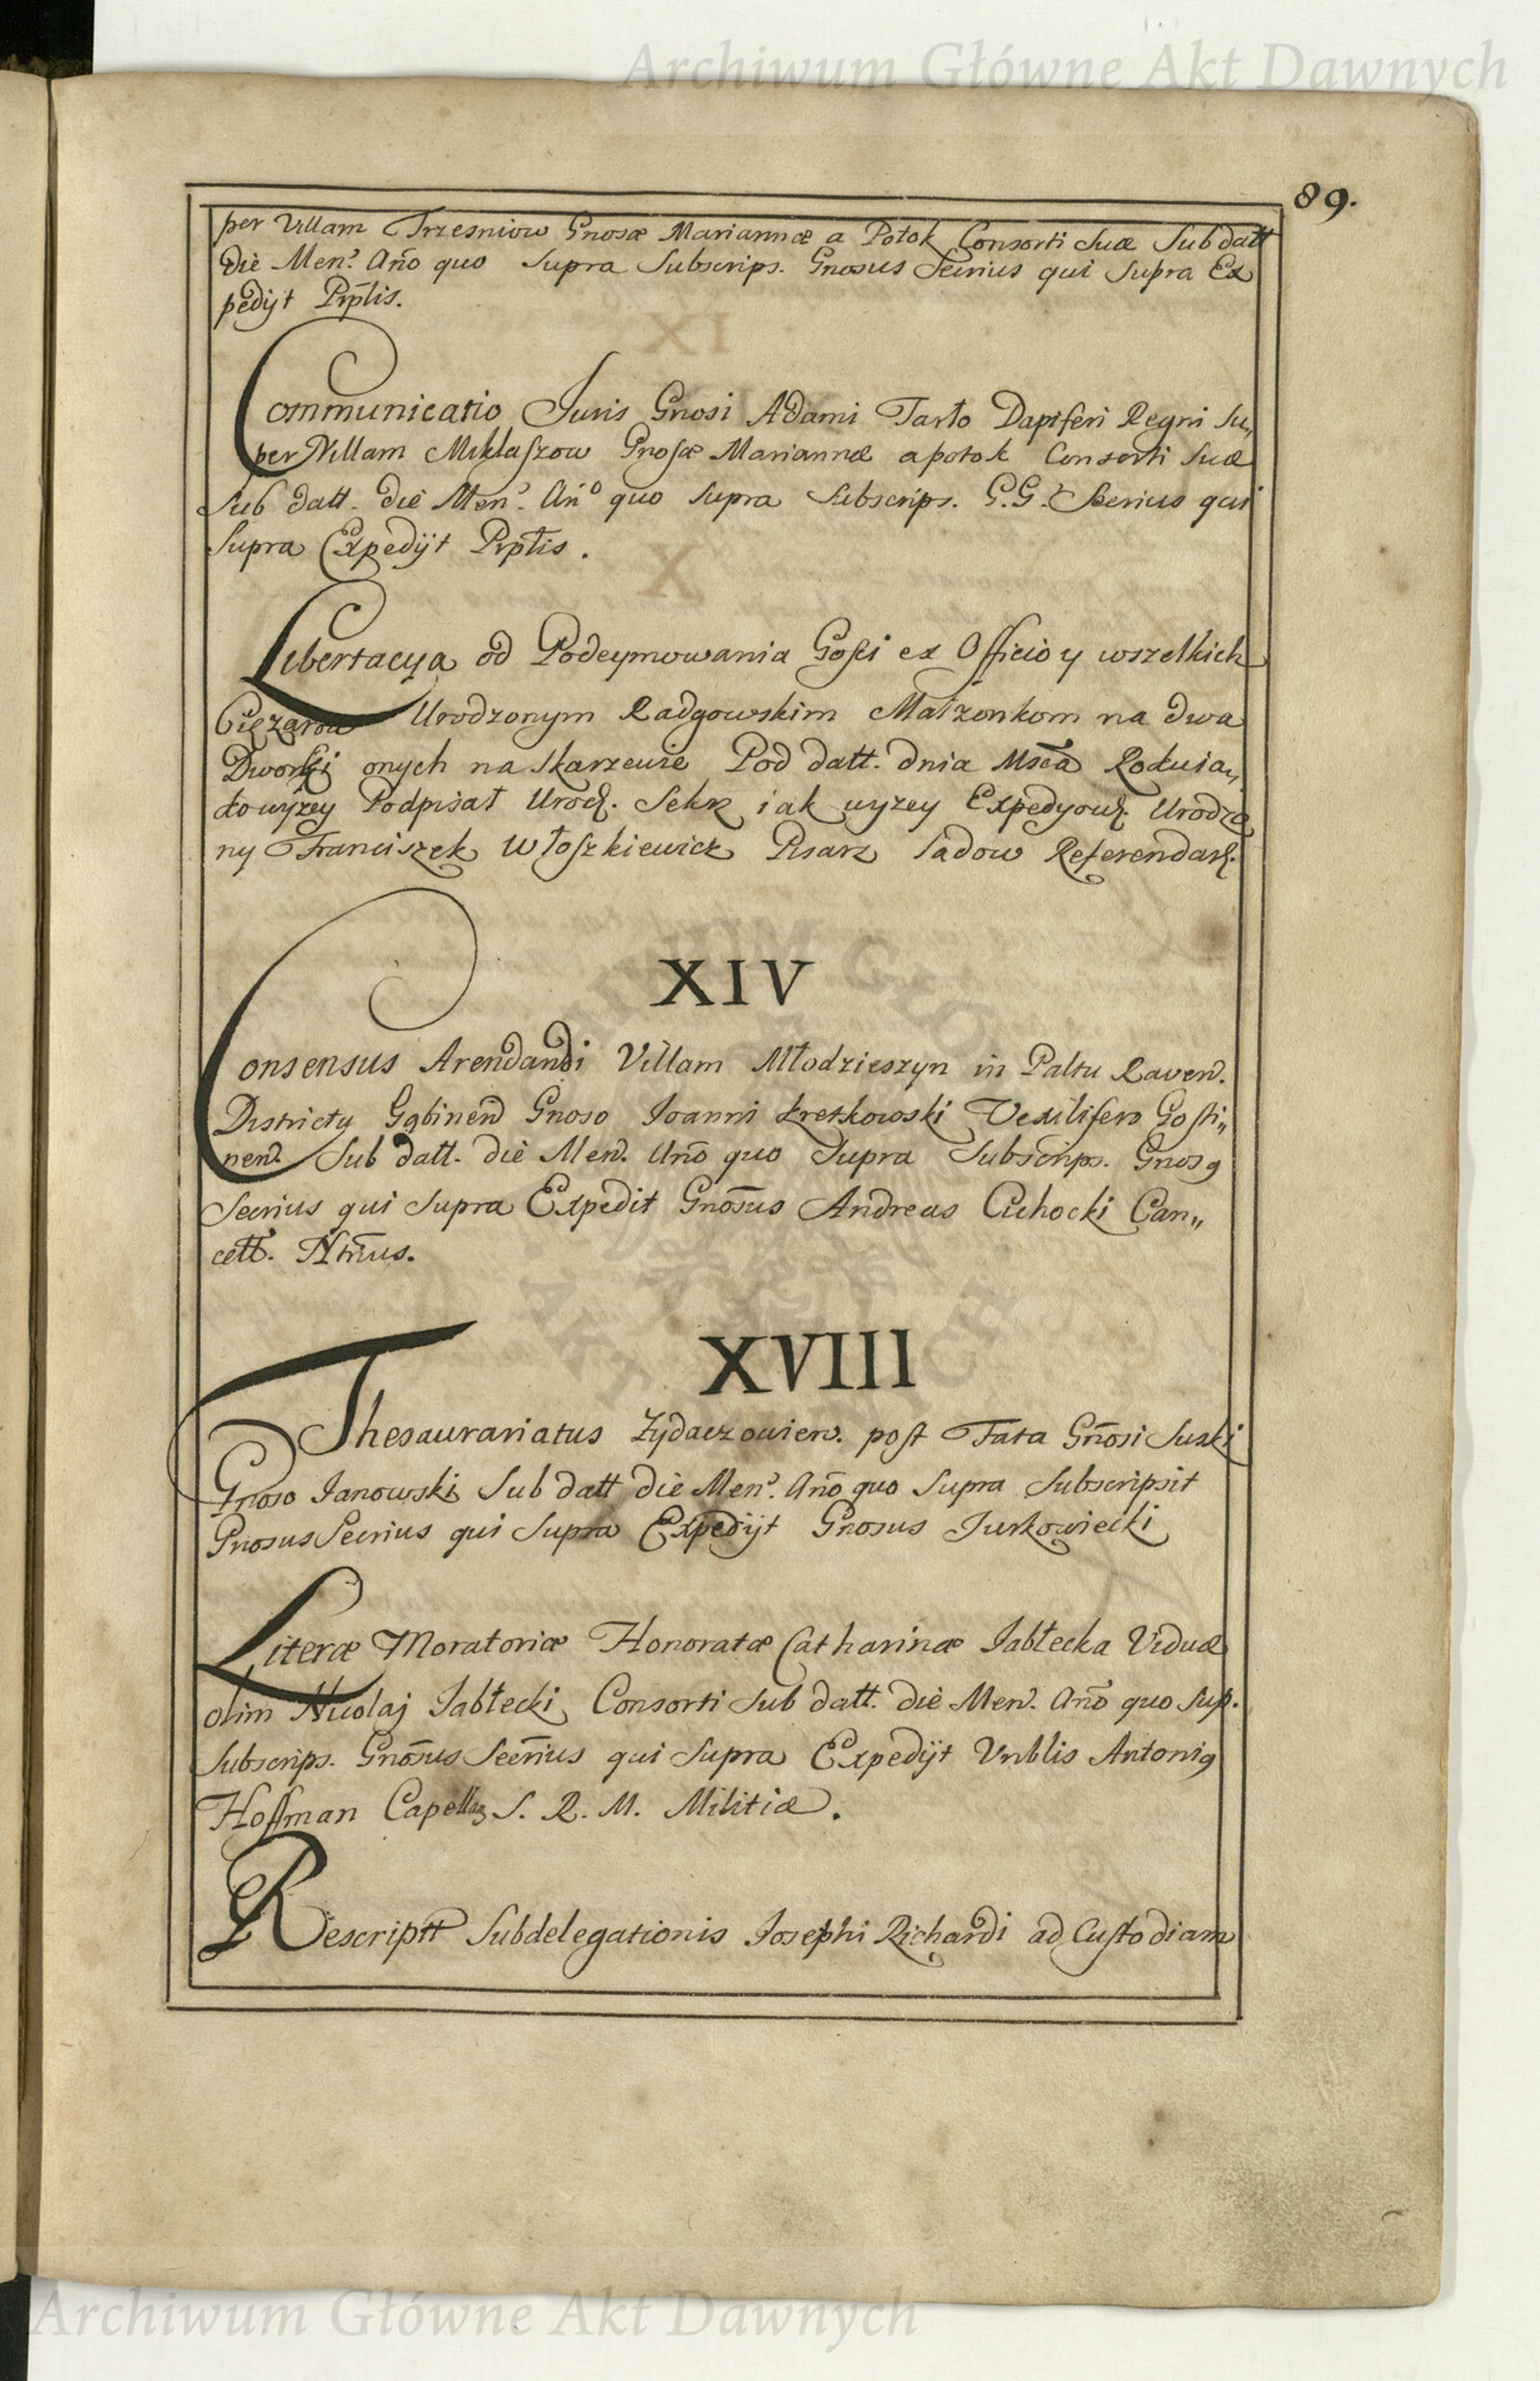 Archiwum Główne Akt Dawnych
89.
per Villam Trzesniow Gnosæ Mariannæ a Potok Consorti Suæ Sub datt
die Men? Año quo Supra Subscrips. Gnosus Secrius qui Supra Ex
pedijt Prptis.
IX
Communicatio Juris Gnosi Adami Tarło Dapiferi Regni Su„
per Villam Miklaszow Gnosæ Mariannæ a potok Consorti Suæ
Sub datt. die Men? Añ° quo Supra Subscrips. G.G. Secrius qui
Supra Expedijt Prptis.
X
Libertacya od Podeymowania Gosci ex Officio y wszelkich
Ciezarow Urodzonym Radgowskim Małżonkom na dwa
Dworki onych na Skarzewie Pod datt. dnia Msca Rokuia„
kowyzey Podpisał Urodz. Sekr iak wyzey Expedyow. Urodzo
ny Franciszek Włoszkiewicz Pisarz Sadow Referendar.
XIV
Consensus Arendandi Villam Młodzieszyn in Paltu Raven.
Districtu Gąbinen Gnoso Joanni Kretkowski Vexilifero Gosti„
nen. Sub datt. die Men. Año quo Supra Subscrips. Gnosq
Secrius qui Supra Expedit Gnosus Andreas Cichocki Can„
cett. Ntrius.
AKT
XVIII
Thesaurariatus Zydaczowien. post Fata Gnosi Suski
Gnoso Janowski Sub datt die Men? Año quo Supra Subscripsit
Gnosus Secrius qui Supra Expedijt Gnosus Jurkowiecki
Literæ Moratoriæ Honoratæ Catharinæ Jabłecka Viduæ
olim Nicolaj Jabłecki Consorti Sub datt. die Men. Año quo Sup.
Subscrips. Gnosus Secrius qui Supra Expedijt Vnblis Antoniq
Hoffman Capellaq S. R. M. Militiæ.
Rescriptt Subdelegationis Josephi Richardi ad Custodiam
Archiwum Główne Akt Dawnych